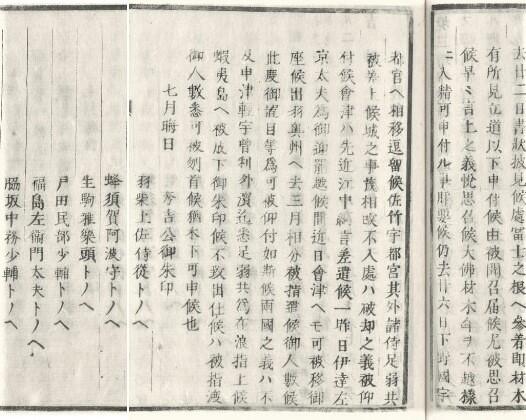 去廿二日書狀披見候富士之根ヘ參着即材木
有所見立道以下申付候由被聞召届候尤被思召
候早〻言上之義悦思召候大佛材木不越樣
ニ入精可申付ル事肝要候仍去廿六日下野國宇
都宮ヘ相移逗留候佐竹宇都宮其外諸侍足弱共
被差上候城之事茂相改不入處ハ被却之義被仰
付候會津ハ先近江中納言差遣候一昨日伊達左
京大夫為御迎罷越候間近日會津ヘモ可被移御
座候出羽奥州ヘ去三月相分被指遣候御人數候
此度御置目等為可被仰付如斯候兩國之義ハ不
及申津輕宇曾利外濱迄悉足弱共為在浪指上候
蝦夷島ヘ被成下御朱印候不致出仕候ハ被指渡
御人數悉可被刎首候猶木下可申候也
七月晦日
秀吉公御朱印
羽柴土左侍從トノヘ
蜂須賀阿波守トノヘ
生駒雅樂頭トノヘ
戸田民部少輔トノヘ
福島左衞門太夫トノヘ
脇坂中務少輔トノヘ